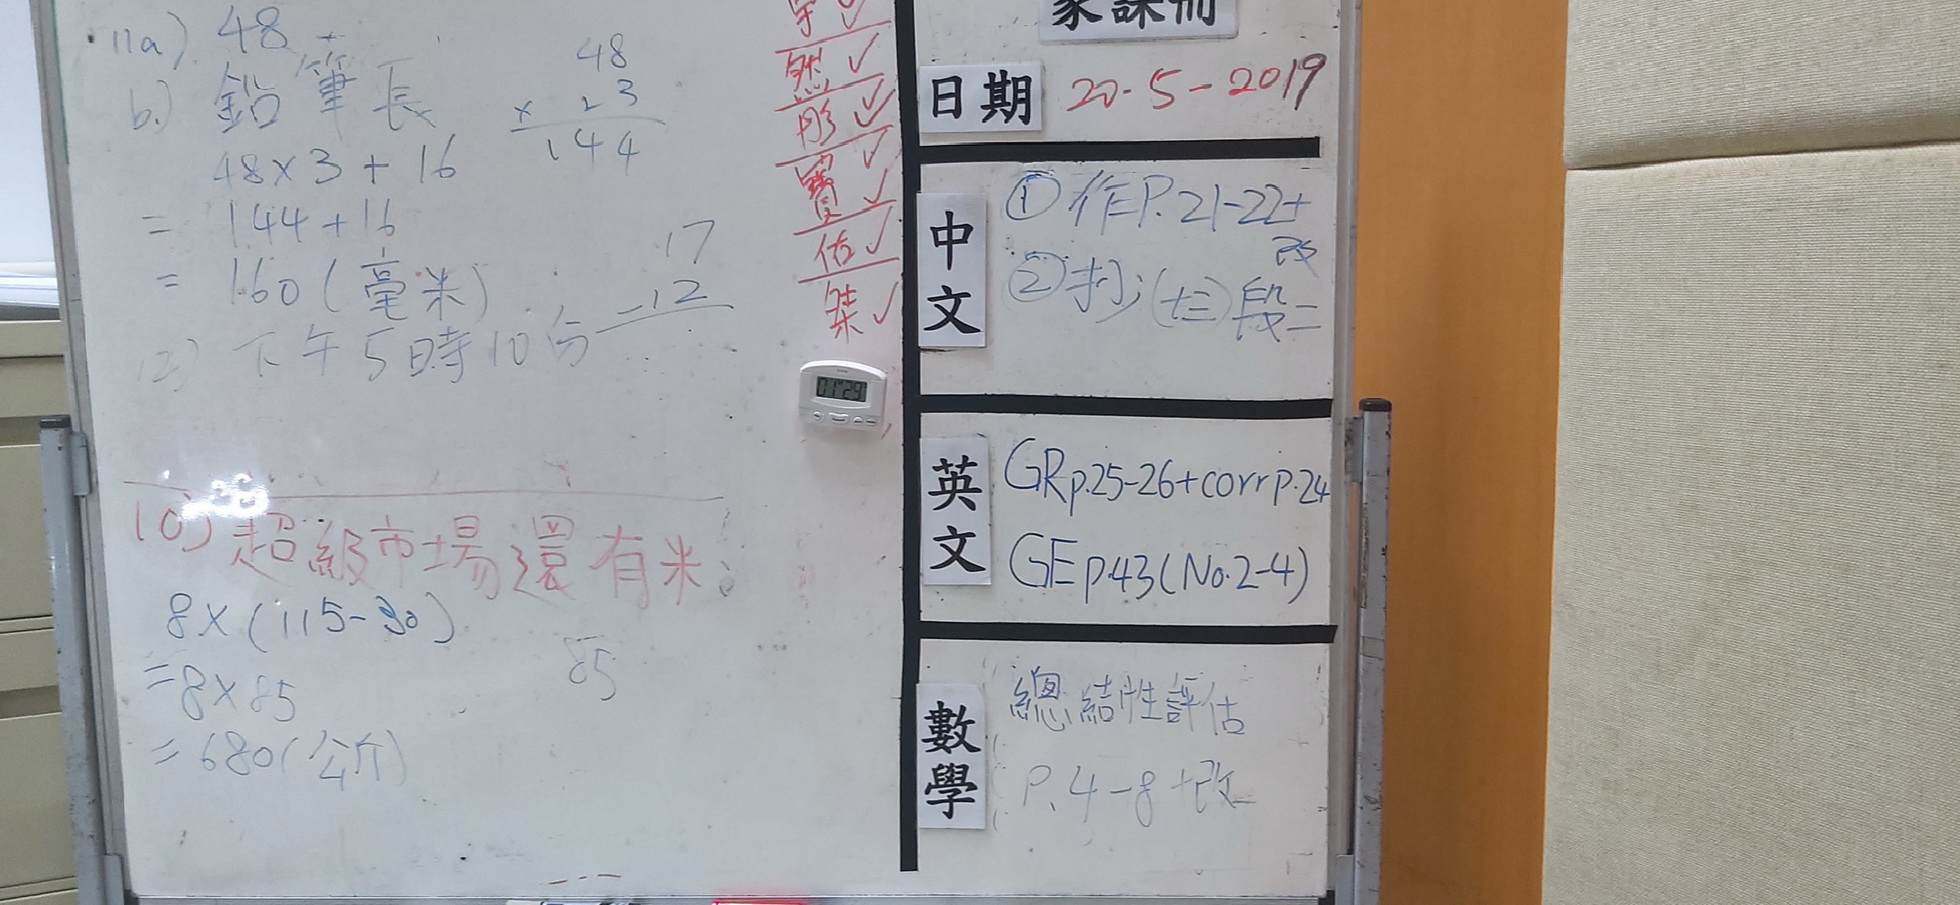 11a) 48
b.) 鉛筆長
48×3+16
= 144+16
= 160(毫米)
12) 下午5時10分
48
× 23
144
17
-12
10) 超級市場還有米:
8×(115-30)
=8×85
=680(公斤)
85
然✓
彤✓
寶✓
佑✓
桀✓
01:29
家課冊
日期 20-5-2019
中文
① 作P.21-22+改
② 抄(十三)段二
英文
GRp.25-26+corrp.24
GEp.43(No.2-4)
數學
總結性評估
P.4-8+改